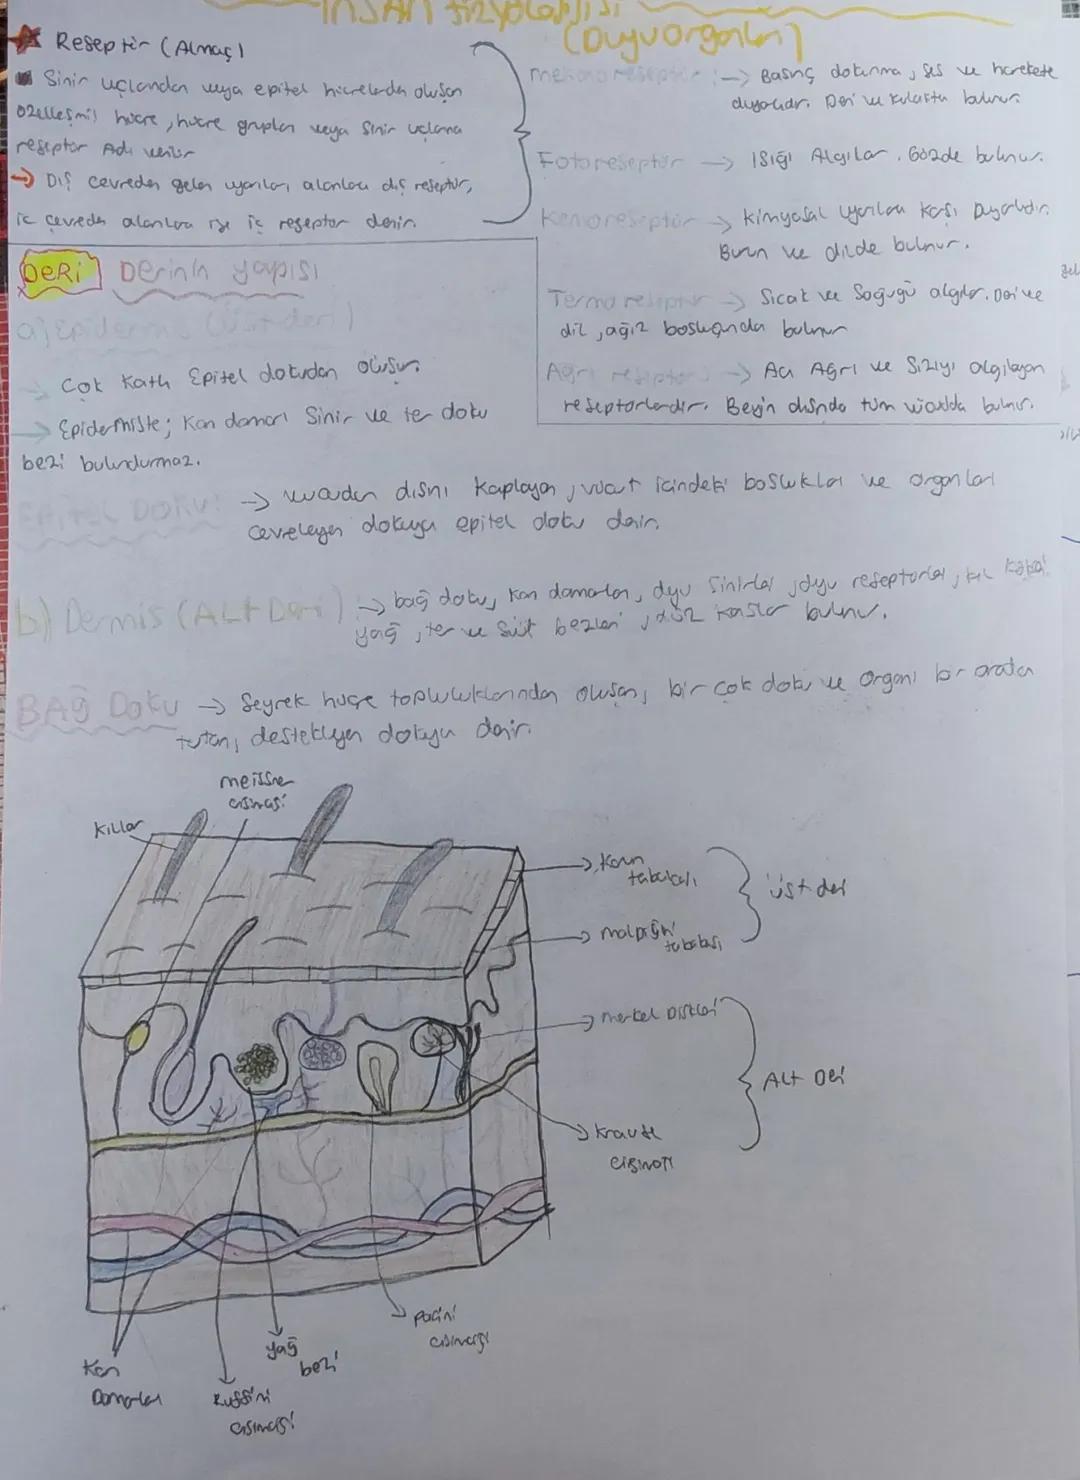 İNSAN fizyolojisi
(Duyu organları)
Reseptör (Almaç)
Sinir uçlarından veya epitel hücrelerden oluşan
özelleşmiş hücre, hücre grupları veya sinir uçlarına
reseptör Adı verilir
→ Dış çevreden gelen uyarıları alanlara dış reseptör,
iç çevreden alanlara ise iç reseptör denir.
mekanoreseptör :→ Basınç dokunma, ses ve harekete
duyarlıdır. Deri ve kulakta bulunur.
Fotoreseptör → Işığı Algılar. Gözde bulunur.
Kemoreseptör → Kimyasal uyarılara karşı Duyarlıdır.
Burun ve dilde bulunur.
Termo reseptör → Sıcak ve Soğuğu algılar. Deri ve
dil, ağız boşluğunda bulunur
Ağrı reseptörü → Acı Ağrı ve Sızıyı algılayan
reseptörlerdir. Beyin dışında tüm vücudda bulunur.
DERİ Derinin yapısı
a) Epidermis (Üst deri)
→ Çok Katlı Epitel dokudan oluşur.
→ Epidermiste; Kan damarı Sinir ve ter doku
bezi bulundurmaz.
EPİTEL DOKU: → vücudun dışını Kaplayan, vücut içindeki boşluklar ve organları
çevreleyen dokuya epitel doku denir.
b) Dermis (ALt Deri) → bağ doku, kan damarları, duyu Sinirleri, duyu reseptörler, kıl kökü
yağ, ter ve süt bezleri, düz kaslar bulunur.
BAĞ Doku → Seyrek hücre topluluklarından oluşan, bir çok doku ve organı bir arada
tutan, destekleyen dokuya denir.
meissner
cisimciği
Kıllar
Korun
tabakası
üst deri
malpighi
tabakası
merkel Diskleri
Alt Deri
Krause
cisimciği
pacini
cisimciği
yağ
bezi
Kan
Damarları
Ruffini
cisimciği